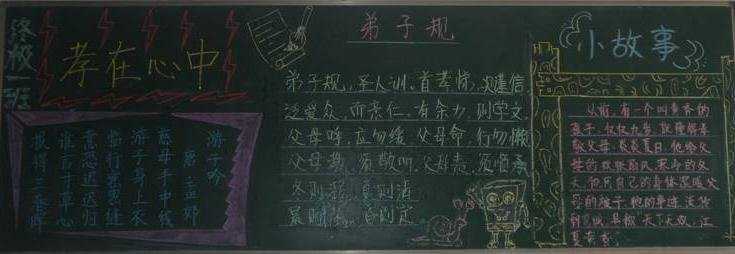 终极一班
孝在心中
游子吟
唐 孟郊
慈母手中线
游子身上衣
临行密密缝
意恐迟迟归
谁言寸草心
报得三春晖
弟子规
弟子规,圣人训。首孝悌,次谨信
泛爱众,而亲仁。有余力,则学文
父母呼,应勿缓。父母命,行勿懒
父母教,须敬听。父母责,须顺承
冬则温,夏则凊
晨则省,昏则定
小故事
从前,有一个叫黄香的
孩子,
敬父母。炎炎夏日,他给父
天,他用自己的身体温暖父
母的被子。他的事迹流传
到京城,号称“天下无双,江
夏黄香”